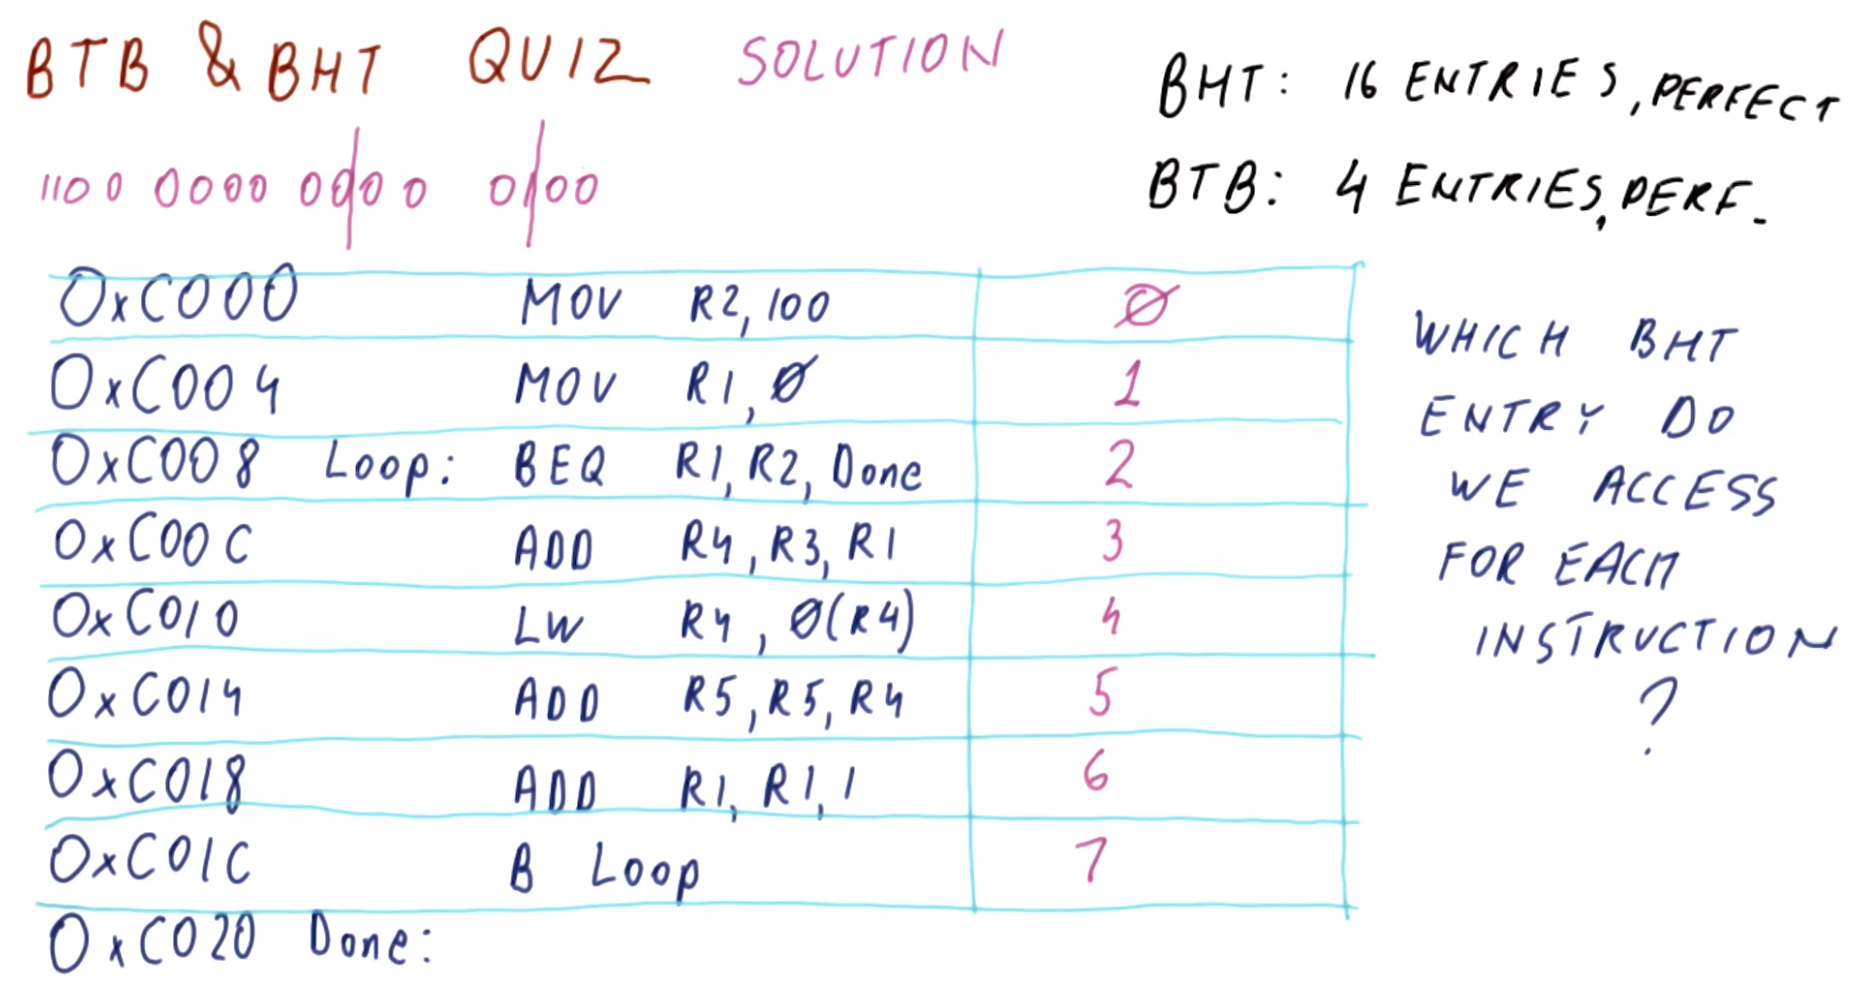 BTB & BHT QUIZ SOLUTION
BHT: 16 ENTRIES, PERFECT
1100 0000 0000 0100
BTB: 4 ENTRIES, PERF.
0xC000 MOV R2, 100 0
0xC004 MOV R1, 0 1
0xC008 Loop: BEQ R1, R2, Done 2
0xC00C ADD R4, R3, R1 3
0xC010 LW R4, 0(R4) 4
0xC014 ADD R5, R5, R4 5
0xC018 ADD R1, R1, 1 6
0xC01C B Loop 7
0xC020 Done:
WHICH BHT
ENTRY DO
WE ACCESS
FOR EACH
INSTRUCTION
?